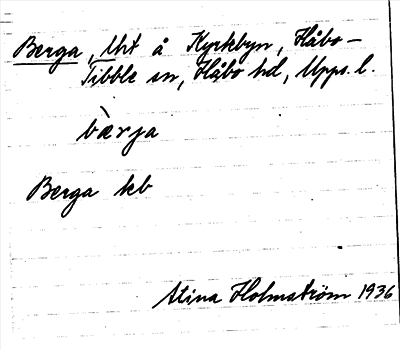 Berga, lht å Kyrkbyn, Håbo-
Tibble sn, Håbo hd, Upps. l.
bæ̀rja
Berga kb
Stina Holmström 1936